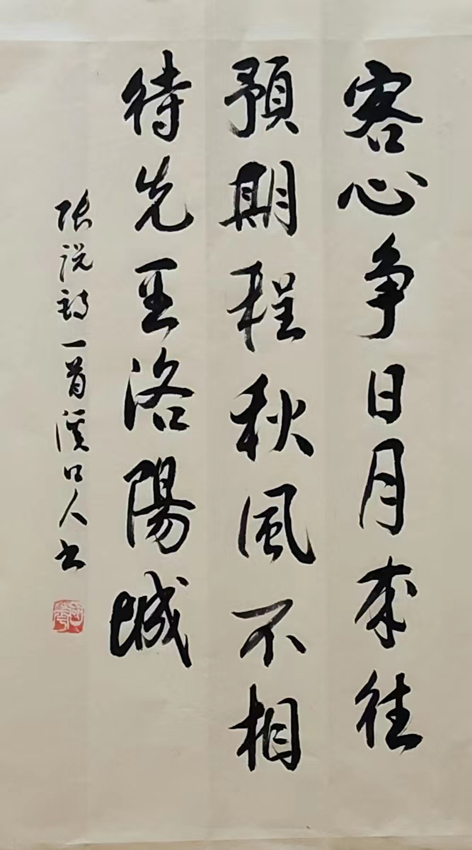 客心争日月来往
預期程秋風不相
待先至洛陽城
張説詩一首溪口人书